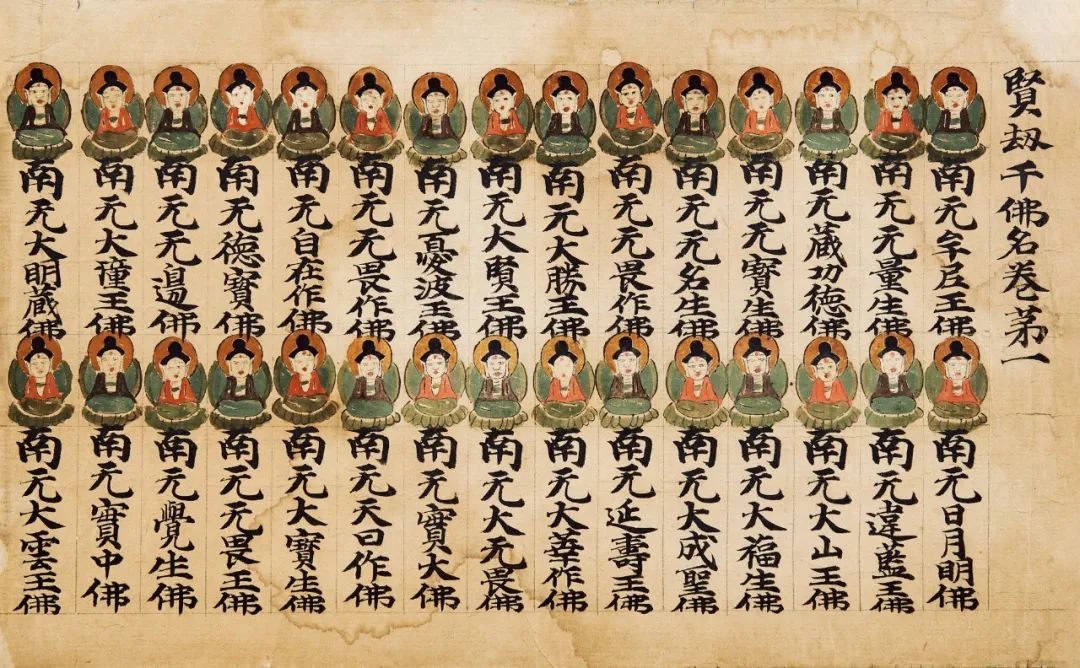 賢劫千佛名卷第一
南无牟尼王佛
南无日月明佛
南无无量生佛
南无違藍王佛
南无蔵功德佛
南无大山王佛
南无无寶生佛
南无大福生佛
南无无名生佛
南无大成聖佛
南无无畏作佛
南无延壽王佛
南无大勝王佛
南无大華作佛
南无大賢王佛
南无大无畏佛
南无憂波王佛
南无寶大佛
南无无畏作佛
南无天日作佛
南无自在作佛
南无大寶生佛
南无德寶佛
南无无畏王佛
南无无邊佛
南无覺生佛
南无大瞳王佛
南无寶中佛
南无大明蔵佛
南无大雲王佛